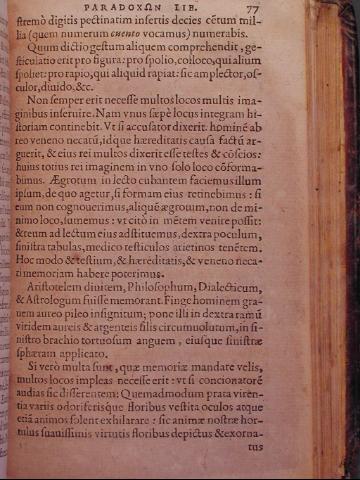 PARADOXΩN LIB. 77
stremò digitis pectinatim insertis decies cētum mil-
lia (quem numerum cuento vocamus) numerabis.
Quum dictio gestum aliquem comprehendit, ge-
sticulatio erit pro figura: pro spolio, colloco, qui alium
spoliet: pro rapio, qui aliquid rapiat: sic amplector, os-
culor, diuido, &c.
Non semper erit necesse multos locos multis ima-
ginibus inseruire. Nam vnus sæpè locus integram hi-
storiam continebit. Vt si accusator dixerit. hominē ab
reo veneno necatū, idque hæreditatis causa factū ar-
guerit, & eius rei multos dixerit esse testes & cōscios:
huius totius rei imaginem in vno solo loco cōforma-
bimus. Ægrotum in lecto cubantem faciemus illum
ipsum, de quo agetur, si formam eius retinebimus: si
eum non cognouerimus, aliquē ægrotum, non de mi-
nimo loco, sumemus: vt citò in mētem venire possit:
& reum ad lectum eius adstituemus, dextra poculum,
sinistra tabulas, medico testiculos arietinos tenētem.
Hoc modo & testium, & hæreditatis, & veneno neca-
ti memoriam habere poterimus.
Aristotelem diuitem, Philosophum, Dialecticum,
& Astrologum fuisse memorant. Finge hominem gra-
uem aureo pileo insignitum; pone illi in dextra ramū
viridem aureis & argenteis filis circumuolutum, in si-
nistro brachio tortuosum anguem, eiusque sinistræ
sphæram applicato.
Si verò multa sunt, quæ memoriæ mandare velis,
multos locos impleas necesse erit: vt si concionatorē
audias sic disserentem: Quemadmodum prata viren-
tia variis odoriferisque floribus vestita oculos atque
etiā animos solent exhilarare: sic animæ nostræ hor-
tulus suauissimis virtutis floribus depictus & exorna-
tus